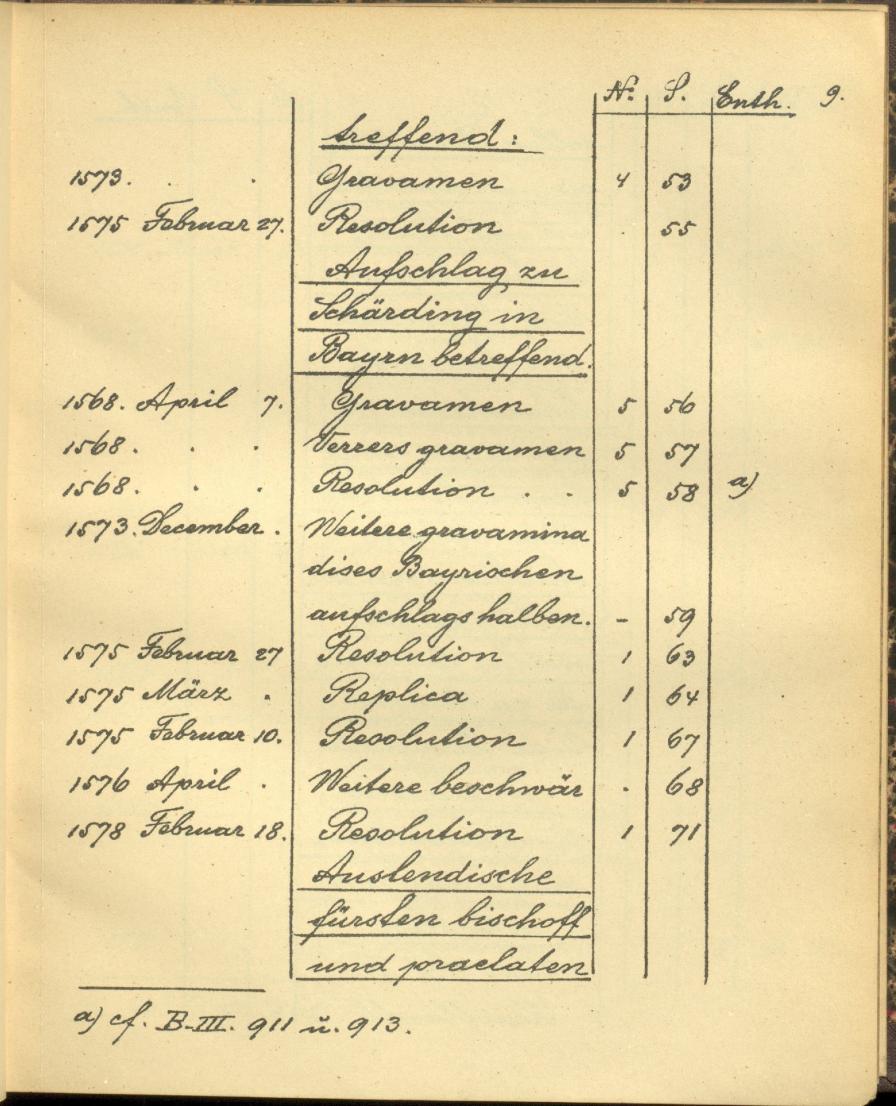 Nº. S. Enth. 9.
treffend:
1573. . . Gravamen 4 53
1575 Februar 27. Resolution . 55
Aufschlag zu
Schärding in
Bayrn betreffend.
1568. April 7. Gravamen 5 56
1568. . . Verrers gravamen 5 57
1568. . . Resolution . . 5 58 a)
1573. December . Weitere gravamina
dises Bayrischen
aufschlags halben. - 59
1575 Februar 27 Resolution 1 63
1575 März . Replica 1 64
1575 Februar 10. Resolution 1 67
1576 April . Weitere beschwär . 68
1578 Februar 18. Resolution 1 71
Auslendische
fürsten bischoff
und praelaten
a) cf. B-III. 911 u. 913.